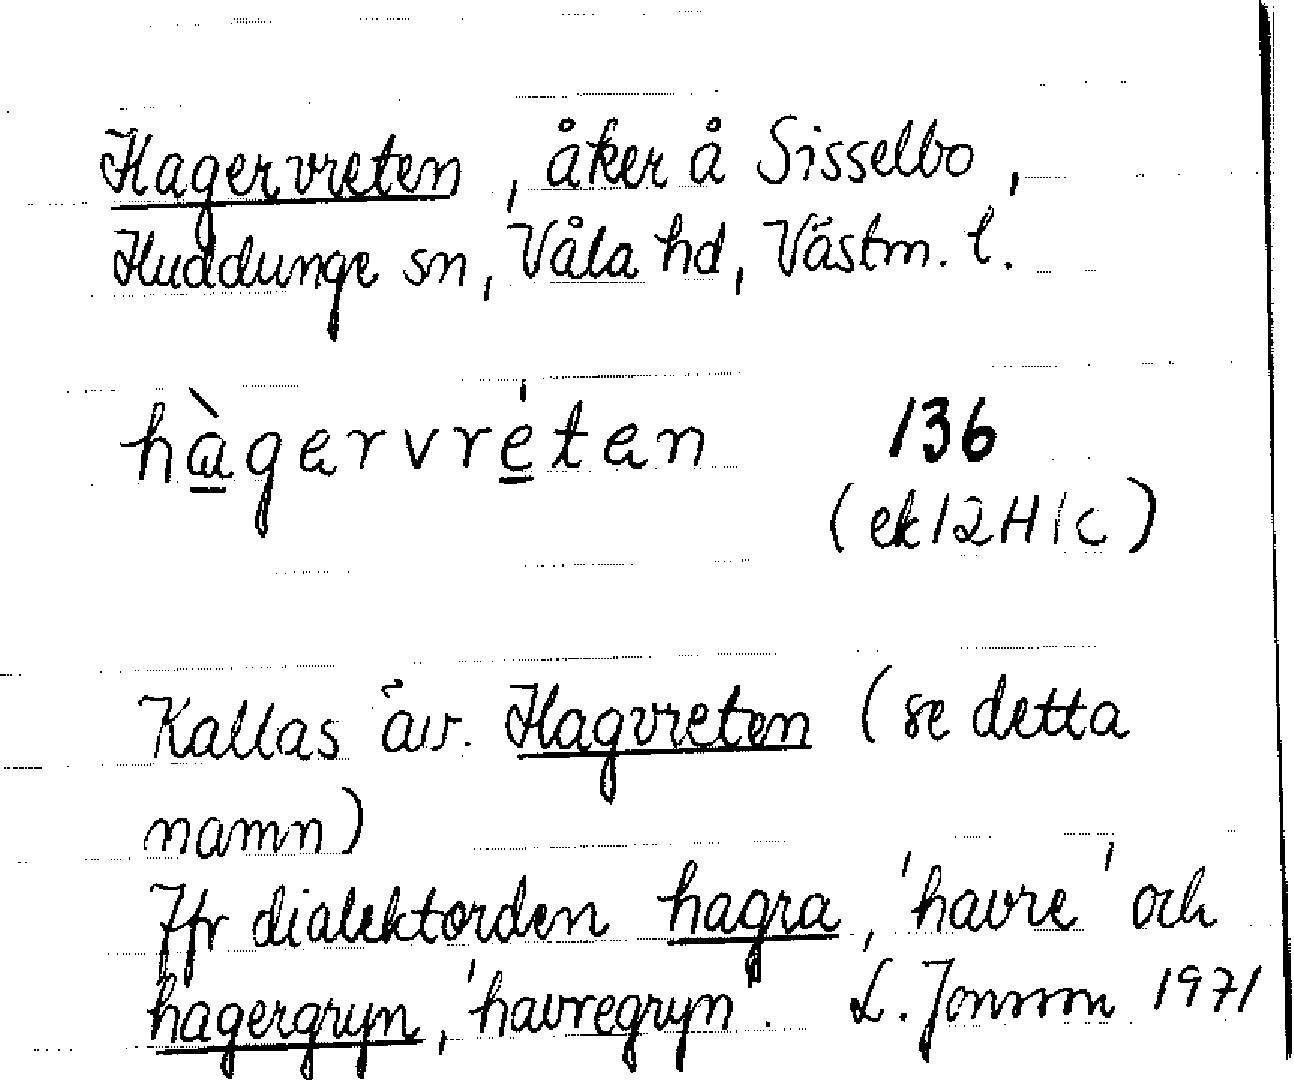 Hagervreten, åker å Sisselbo,
Huddunge sn, Våla hd, Västm. l.
hàgervréten 136
(ek 12H 1c)
Kallas äv. Hagvreten (se detta
namn)
Jfr dialektorden hagra, 'havre' och
hagergryn, 'havregryn'. L. Jonsson 1971